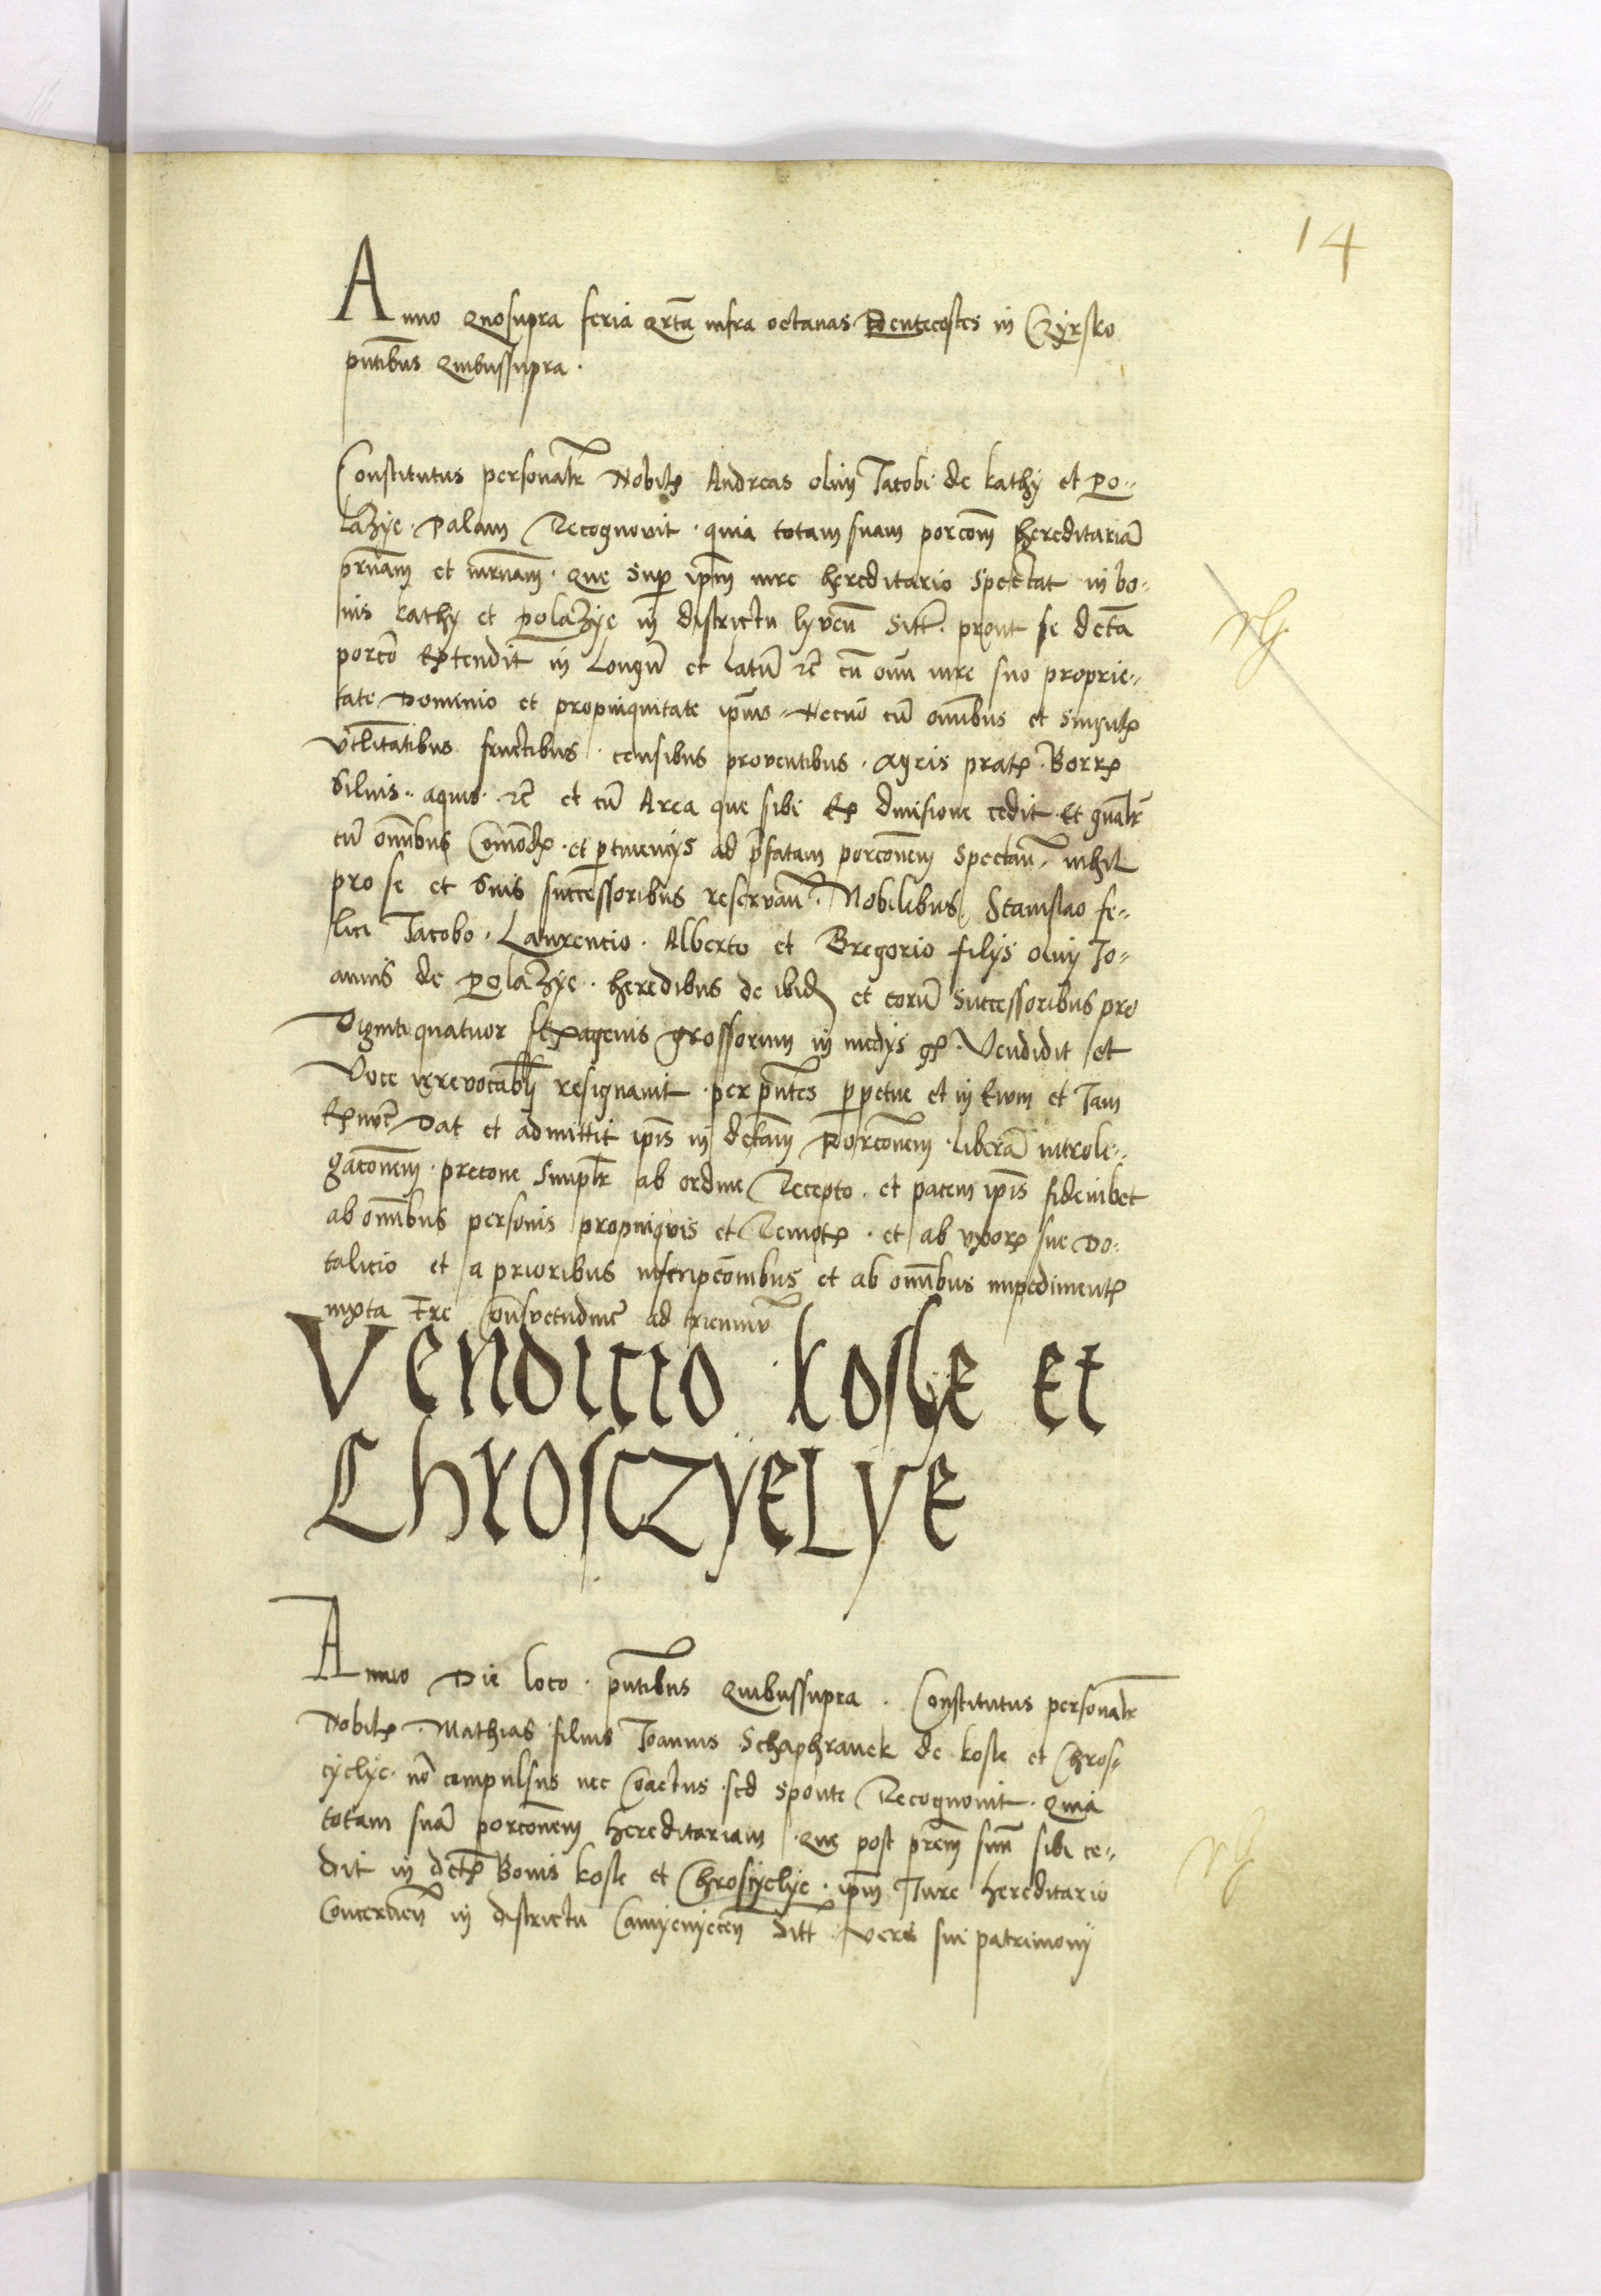 14
Anno Quosupra feria qrta infra octauas Pentecostes in Czyrsko
pntibus Quibussupra.
Constitutus personalr Nobilis Andreas olim Jacobi de kathy et Po-
lazye. Palam Recognouit. quia totam suam porcom hereditaria
prnam et mrnam. que sup ipm iure hereditario Spectat in bo-
nis kathy et Polazye in districtu lyven Sitt. prout se dcta
porco Extendit in Longu et Latu etc cu omi iure suo proprie-
tate Dominio et propinquitate ipius Necno cu omnibus et Singulis
vtilitatibus fructibus. censibus prouentibus. Agris pratis. Borris
Siluis. aquis. etc et cu Area que sibi Ex diuisione cedit. Et gnalr
cu omnibus Comodis. et ptinencys ad pfatam porconem Spectan. nihil
pro se et Suis successoribus reseruan. Nobilibus Stanislao fe-
lici Jacobo. Laurencio. Alberto et Gregorio filys olim Jo-
annis de Polazye. heredibus de ibid et eoru Successoribus pro
Viginti quatuor sexagenis grossorum in medys gs. Vendidit et
Voce irreuocabli resignauit. per pntes ppetue et in Ewm et Jam
Exnuc Dat et admittit ipis in dctam Porconem. libera introli-
gaconem. precone Simplr ab ordine Recepto. et pacem ipis fideiubet
ab omnibus personis propinquis et Remotis. et ab vxoris sue Do-
talicio et a prioribus inscripconibus et ab omnibus impedimentis
iuxta Tre Consuetudine ad trienniu
Vendicio kosle et
Chrosczyelye
Anno Die loco. pntibus Quibussupra. Constitutus personalr
Nobilis. Mathias filius Joannis Schaphranek de kosle et Chros-
cyelye. no compulsus nec Coactus. sed Sponte Recognouit. Quia
totam sua porconem hereditariam. que post prem suu sibi ce-
dit in dctis Bonis kosle et Chroscyelye. ipm Jure hereditario
Concernen in districtu Camyenyecen Sitt. veri sui patrimonij